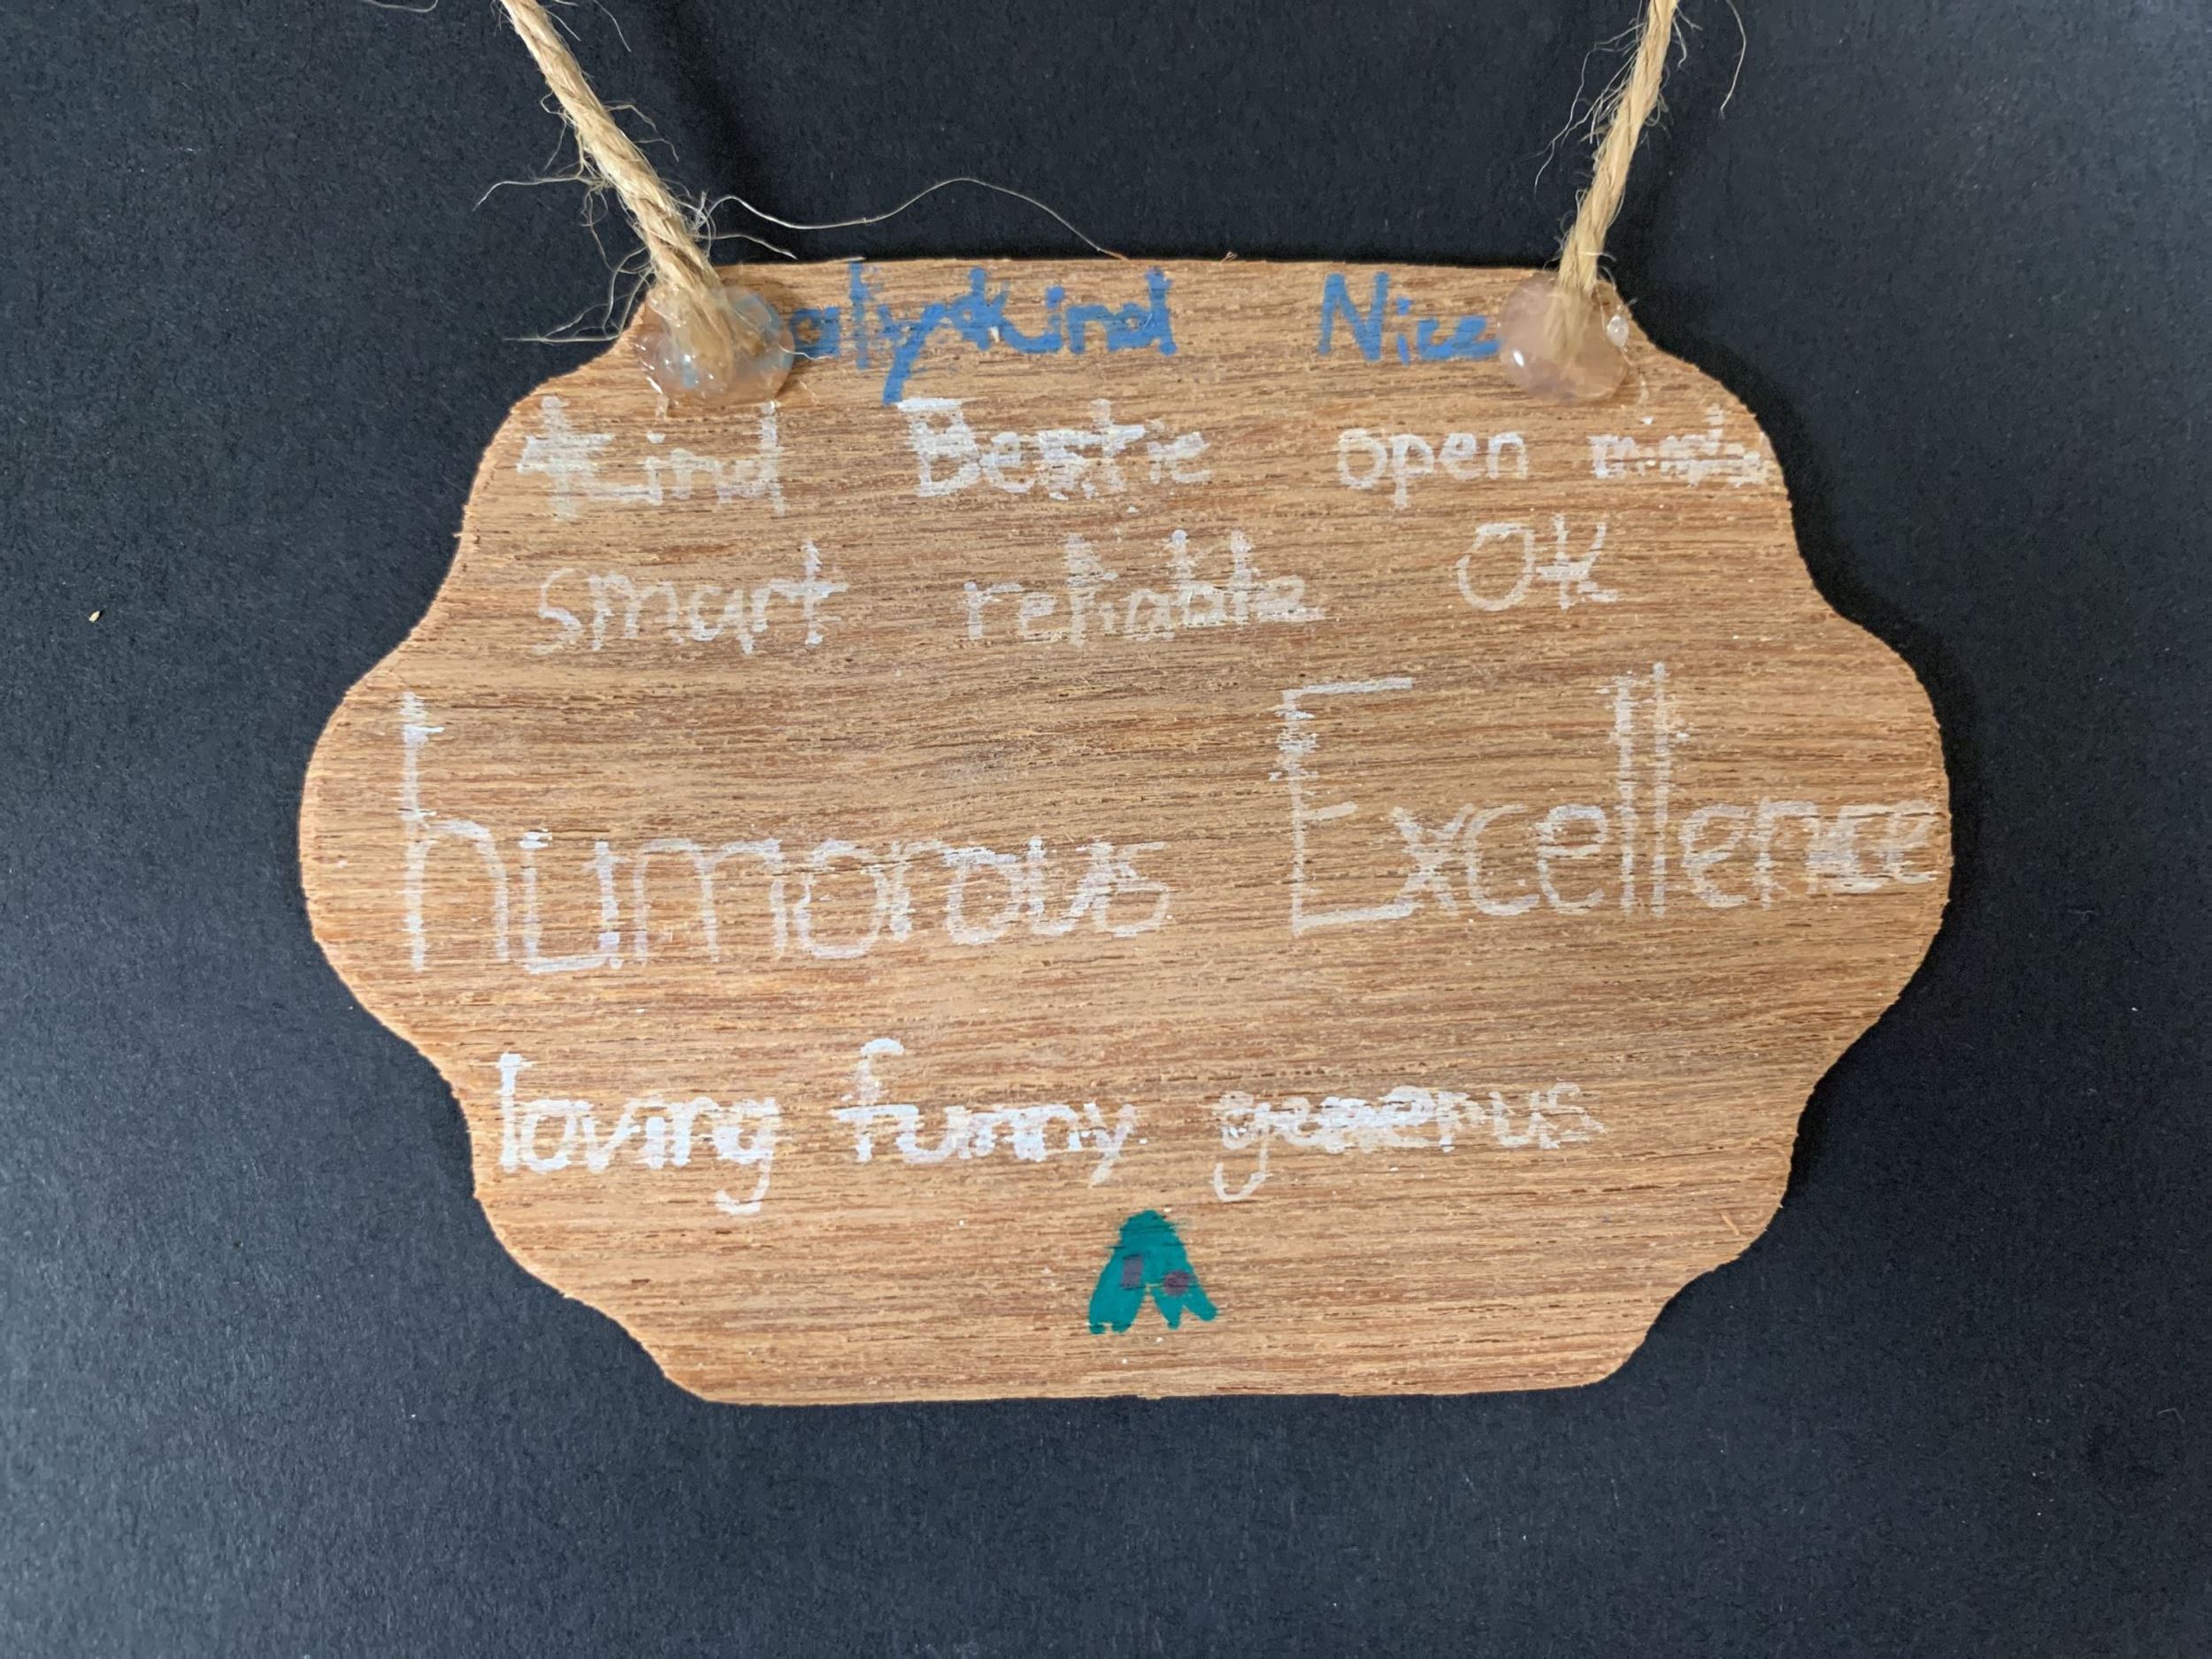 kind Nice
kind Bestie open
smart reliable OK
humorous Excellence
loving funny generus